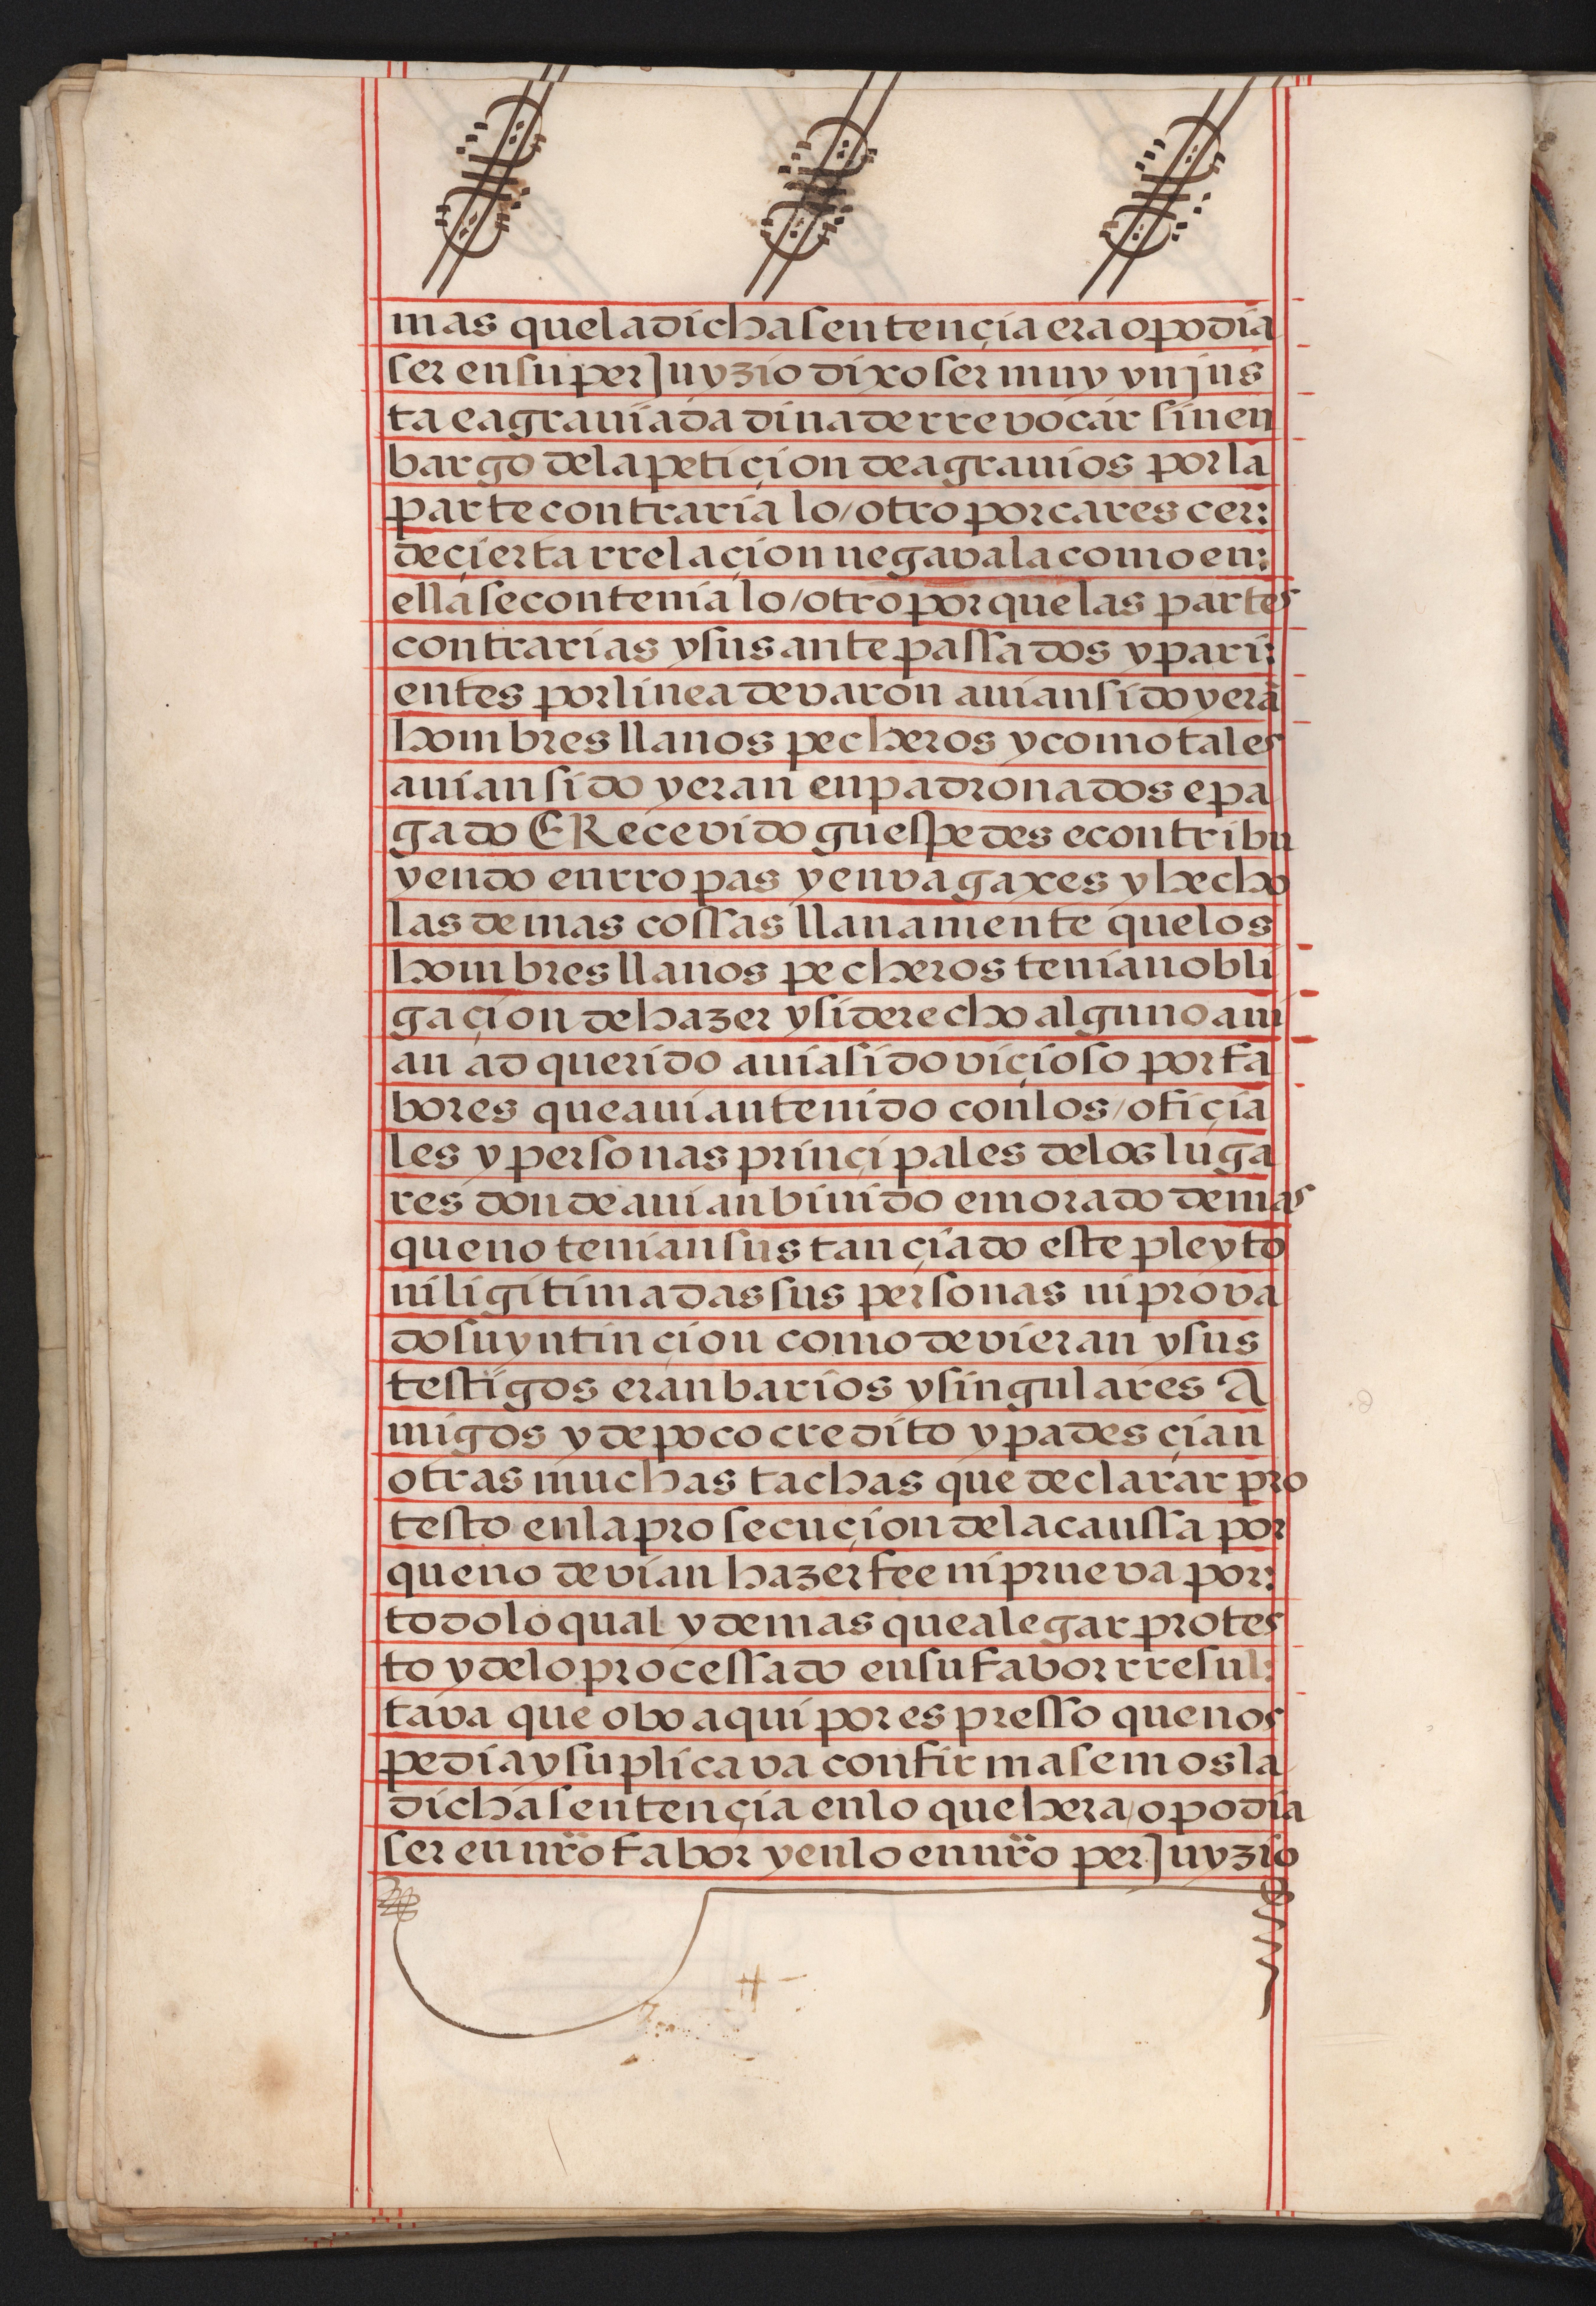 mas quela dicha sentençia era o podia
ser en su perJuyzio dixo ser muy ynjus
ta e agraviada dina de rrevocar sin en
bargo dela petiçion de agravios por la
parte contraria lo/otro por cares cer:
de çierta rrelaçion negavala como en:
ella se contenia lo/otro por que las partes
contrarias y sus antepassados y pari:
entes por linea de varon avian sido y erã
hombres llanos pecheros y como tales
avian sido y eran enpadronados e pa
gado E Recevido guespedes e contribu
yendo en rropas y en vagaxes y hecho
las demas cossas llanamente que los
hombres llanos pecheros tenian obli
gaçion de hazer y si derecho alguno avi
an ad querido avia sido viçioso por fa
bores que avian tenido con los/ofiçia
les y personas prinçipales delos luga
res donde avian bivido e morado demas
que no tenian sustançiado este pleyto
ni ligitimadas sus personas ni prova
do su yntinçion como devieran y sus
testigos eran barios y singulares A
migos y de poco credito y pades çian
otras muchas tachas que declarar pro
testo en la prosecuçion dela caussa por
que no devian hazer fee ni prueva por:
todo lo qual y demas que alegar protes
to y delo processado en su fabor rresul:
tava que obo aqui por espresso que nos
pedia y suplicava confirmasemos la
dicha sentençia en lo que hera/o podia
ser en nr̃o fabor y en lo en nr̃o perJuyzio